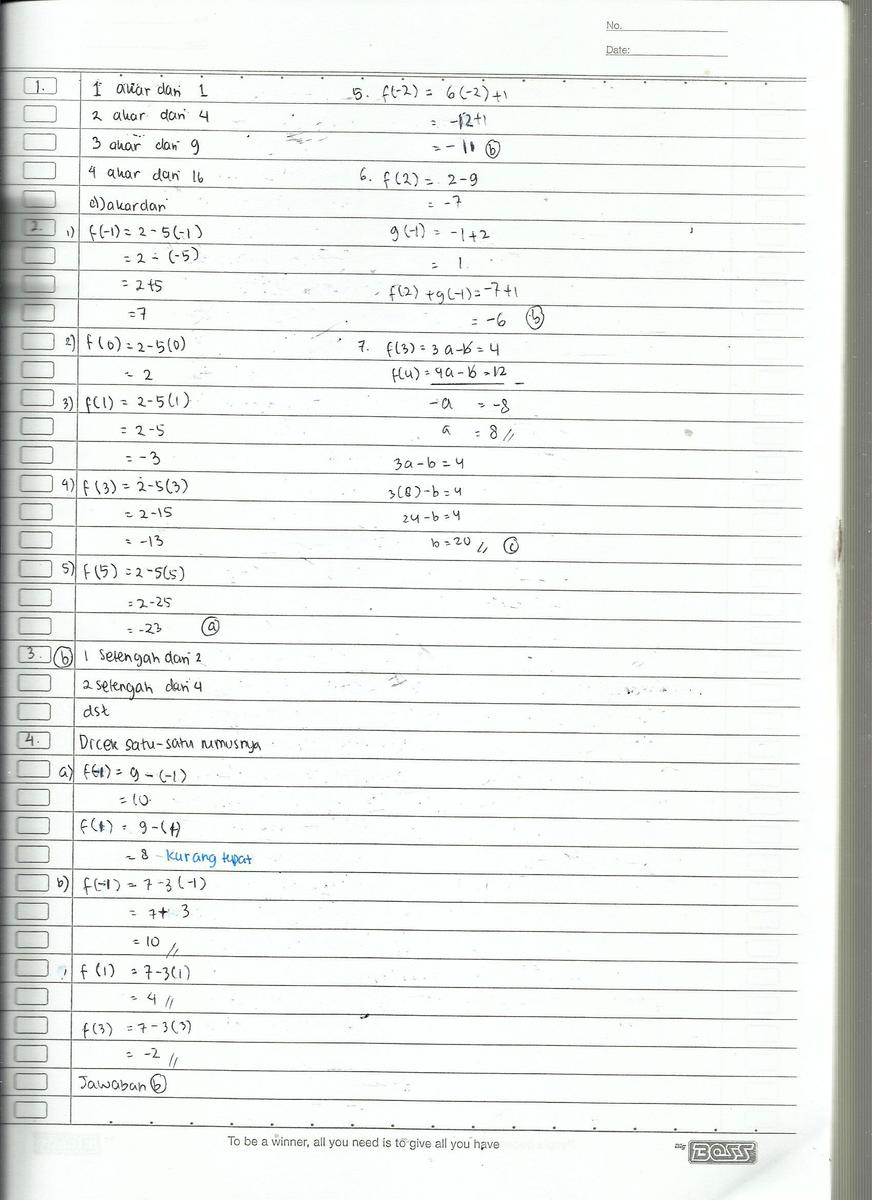 No.
Date:
1. 1 akar dari 1
2 akar dari 4
3 akar dari 9
4 akar dari 16
d) akar dari
2. 1) f(-1) = 2 - 5(-1)
= 2 - (-5)
= 2+5
= 7
2) f(0) = 2-5(0)
= 2
3) f(1) = 2-5(1)
= 2-5
= -3
4) f(3) = 2-5(3)
= 2-15
= -13
5) f(5) = 2-5(5)
= 2-25
= -23 (a)
3. (b) 1 setengah dari 2
2 setengah dari 4
dst
4. Dicek satu-satu rumusnya
a) f(-1) = 9 - (-1)
= 10
f(1) = 9-(1)
= 8 kurang tepat
b) f(-1) = 7-3(-1)
= 7+ 3
= 10 //
f(1) = 7-3(1)
= 4 //
f(3) = 7-3(3)
= -2 //
Jawaban (b)
5. f(-2) = 6(-2)+1
= -12+1
= -11 (b)
6. f(2) = 2-9
= -7
g(-1) = -1+2
= 1
f(2) + g(-1) = -7+1
= -6 (b)
7. f(3) = 3a-b = 4
f(4) = 4a-b = 12 -
-a = -8
a = 8 //
3a-b = 4
3(8)-b = 4
24-b = 4
b = 20 // (c)
To be a winner, all you need is to give all you have
My BOSS